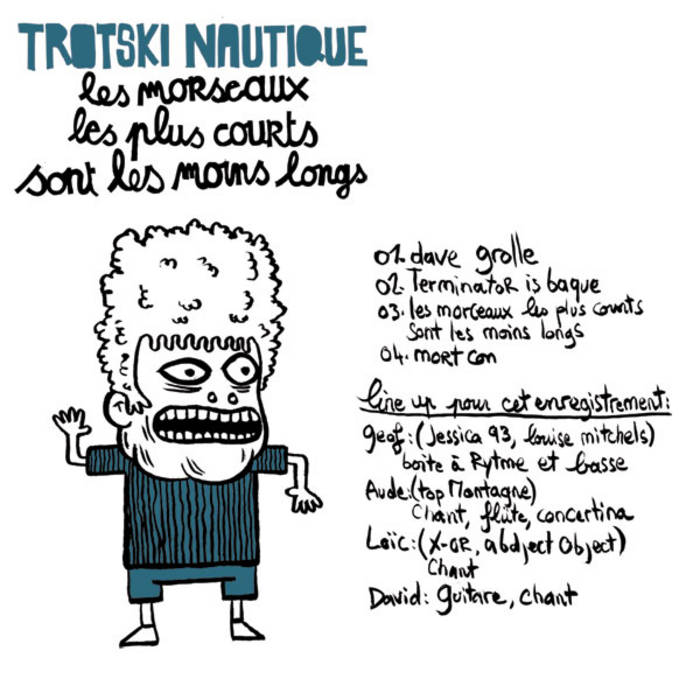 TROTSKI NAUTIQUE
les morseaux
les plus courts
sont les moins longs
01. dave grolle
02. Terminator is baque
03. les morceaux les plus courts
sont les moins longs
04. mort con
line up pour cet enregistrement:
geof: (Jessica 93, louise mitchels)
boite à Rytme et basse
Aude: (top Montagne)
chant, flûte, concertina
Loïc: (X-OR, abdject Object)
chant
David: guitare, chant